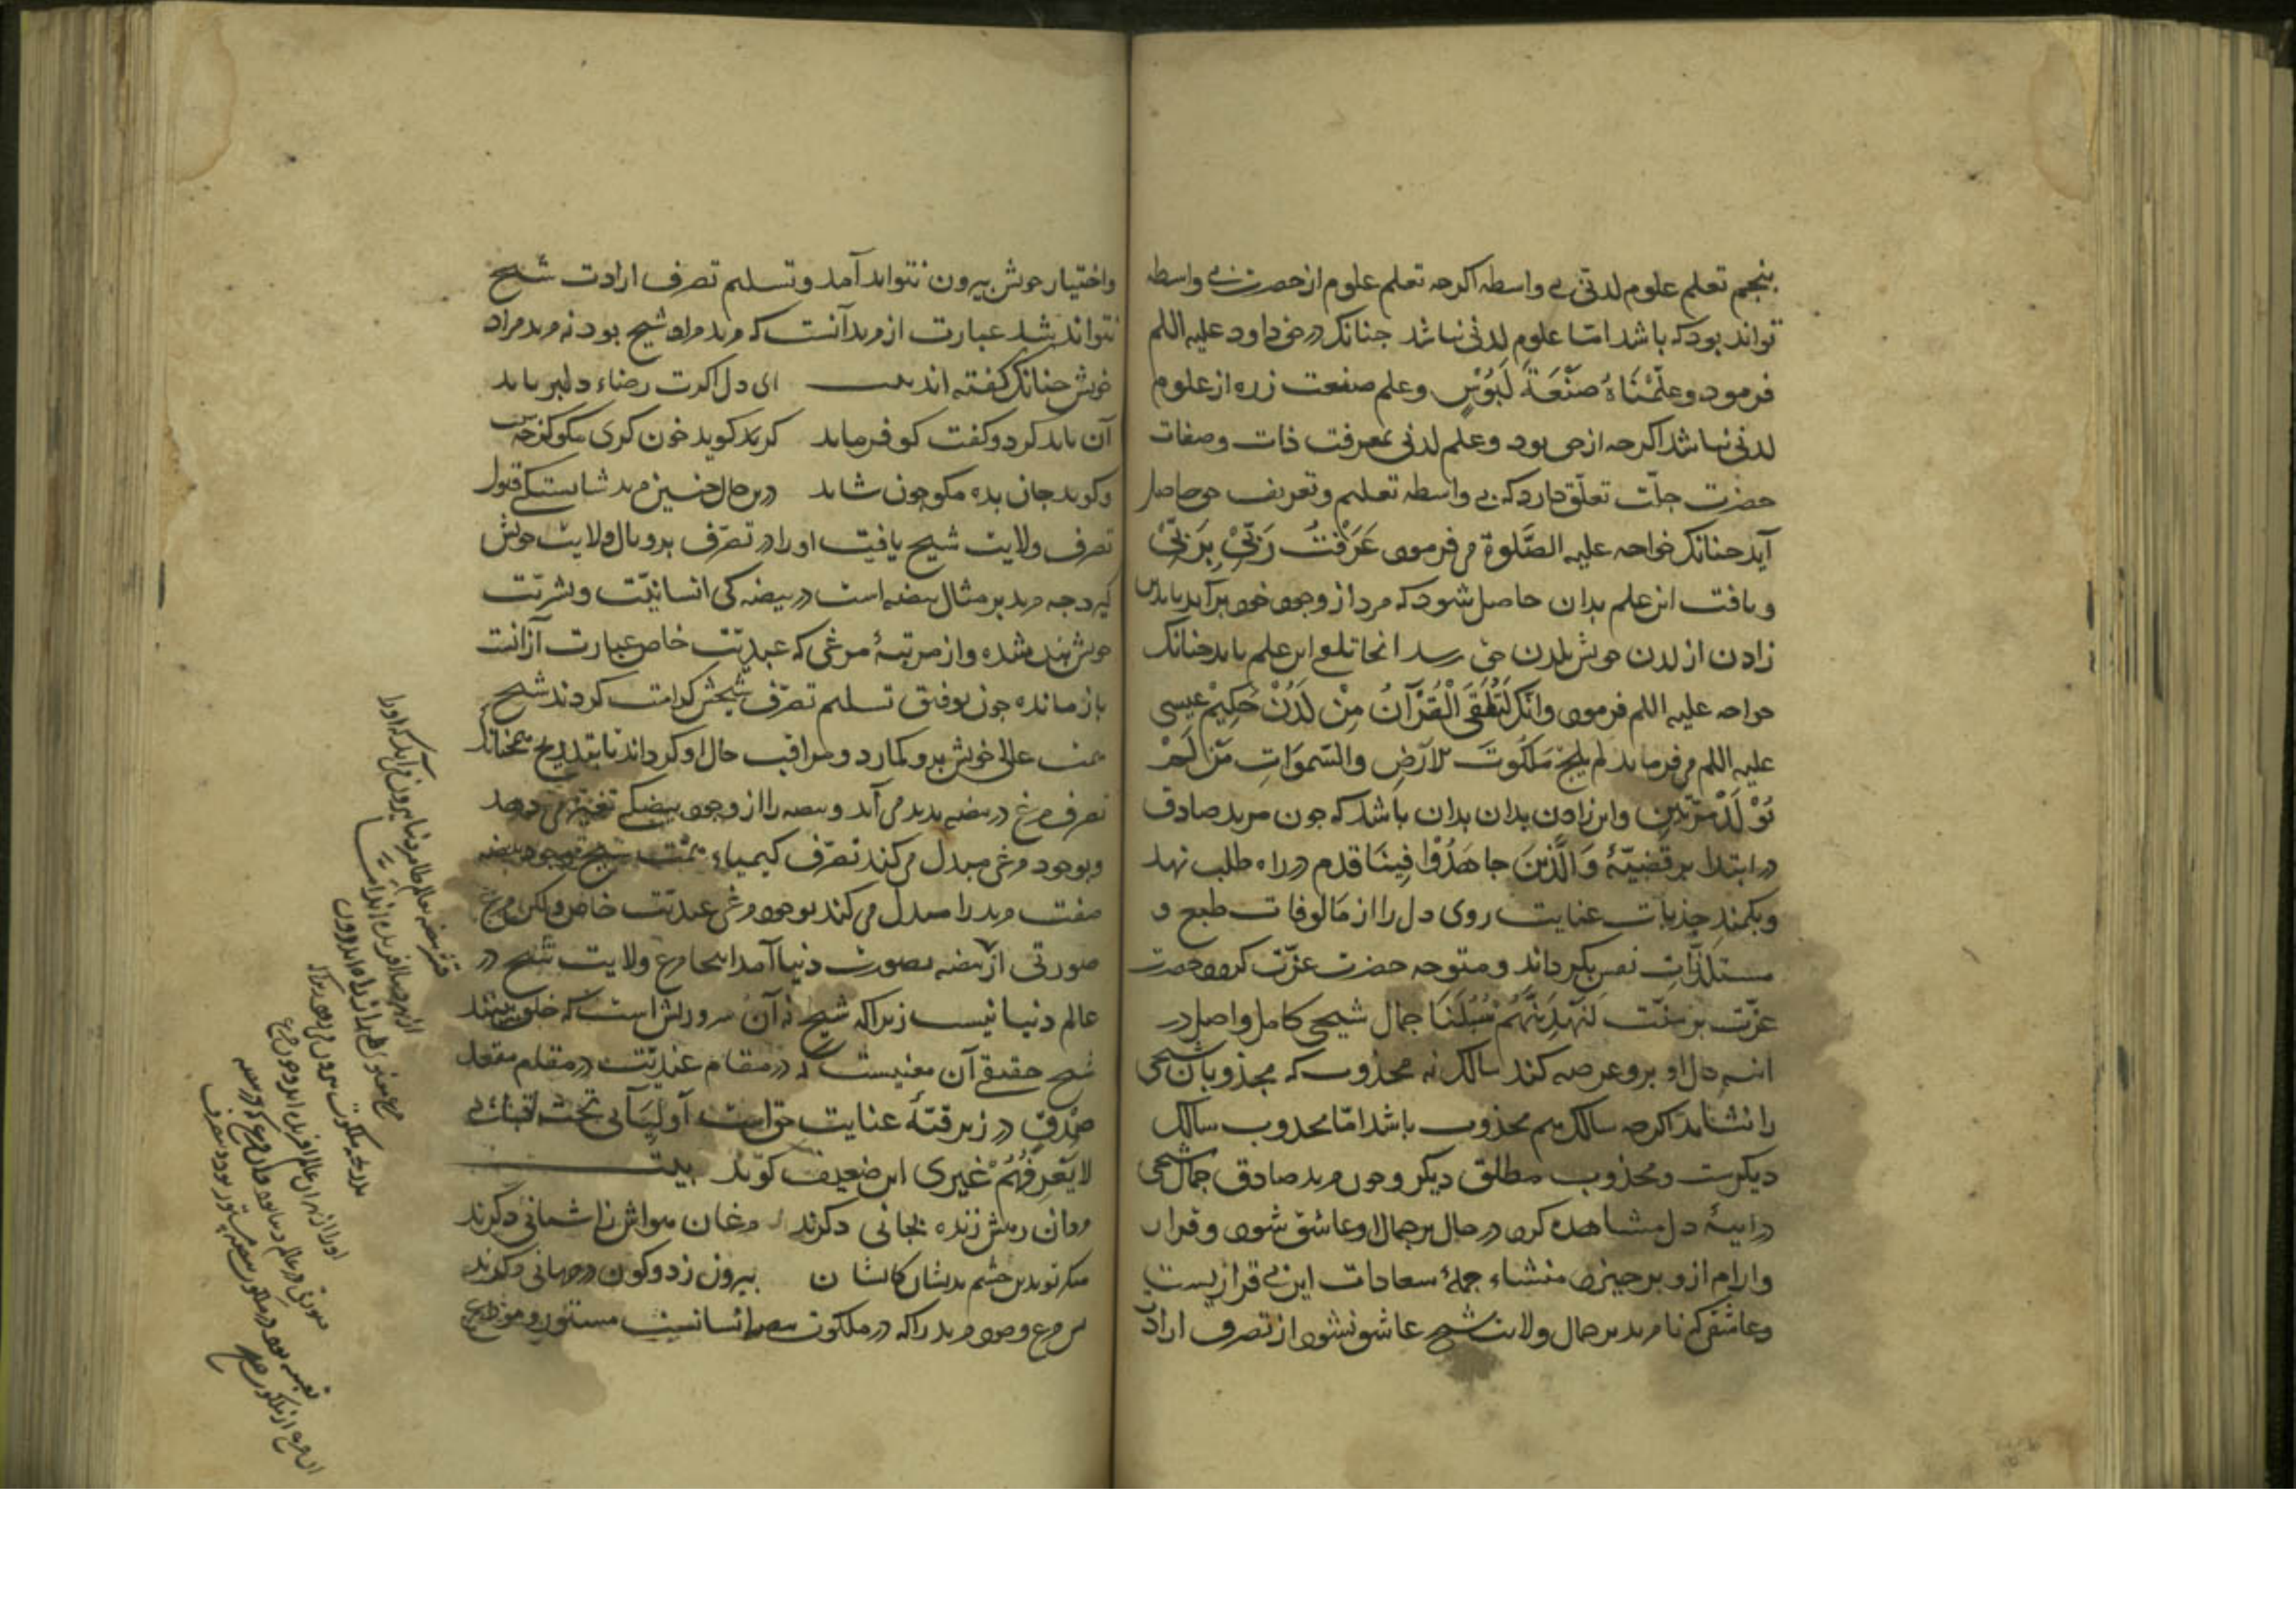 پنجم تعلم علوم لدنی بی واسطه اکرچه تعلم علوم از حضرت بی واسطه
تواند بود که باشد امّا علوم لدنی نباشد جنانک در حق داود علیه السلم
فرمود وعلّمْنَاهُ صَنْعَةَ لَبُوْسٍ وعلم صنعت زره از علوم
لدنی نباشد اکرچه از حق بود وعلم لدنی بمعرفت ذات وصفات
حضرت جلّت تعلّق دارد که بی واسطه تعلیم وتعریف حق حاصل
آید جنانک خواجه علیه الصَّلوة می فرمود عَرَفْتُ رَبّیْ بِرَبّیْ
ویافت این علم بدان حاصل شود که مرد از وجود خود برآید بادن
زادن از لدن خویش بلدن حق رسد انجا تلقی این علم یابد جنانک
خواجه علیه السلم فرمود وانّک لَتُلَقَّی الْقُرْآنَ مِنْ لَدُنْ حَکِیْمٍ عیسی
علیه السلم می فرماید لم یلجْ مَلَکُوتَ الارَضِ والسّموَاتِ مَنْ لَمْ
یُوْلَدْ مَرّتَیْنِ واین زادن بدان باشد که جون مرید صادق
در ابتدا بر قضیّهٔ وَالَّذینَ جاهَدُوْا فِینَا قدم در راه طلب نهد
وبکمندِ جذبات عنایت روی دل را از مَالوفات طبع و
مستلذّاتِ نفس بکرداند ومتوجه حضرت عزّت کردد حضرت
عزّت بر سنّت لَنَهْدِیَنَّهُمْ سُبُلَنَا جمال شیخی کامل واصل در
اینه دل او برو عرضه کند سالک نه مجذوب که مجذوبان شیخی
را نشاید اکرچه سالک هم مجذوب باشد امّا مجذوب سالک
دیکرست ومجذوب مطلق دیکر وجون مرید صادق جمال شیخی
در اینهٔ دل مشاهده کرد در حال بر جمال او عاشق شود وقرار
وارام ازو برخیزد منشاء جملهٔ سعادات این بی قراریست
وعاشقی که تا مرید بر جمال ولایت شیخ عاشق نشود از تصرف ارادت
واختیار خویش بیرون نتواند آمد وتسلیم تصرف ارادت شیخ
نتواند شد عبارت از مرید آنست که مرید مراد شیخ بود نه مرید مراد
خویش جنانک کفته اند بیت ای دل اکرت رضاء دلبر باید
آن باید کرد وکفت کو فرماید کر کوید خون کری مکو کز جه سبب
ور کوید جان بده مکو جون شاید درین حال جنین مرید شایستکی قبول
تصرف ولایت شیخ یافت او را در تصرّف پر وبال ولایت خویش
کیرد جه مرید بر مثال بیضه است در بیضه کی انسانیّت وبشریّت
خویش بند شده واز مرتبهٔ مرغی که عبدیّت خاص عبارت ازانست
بازمانده جون توفیق تسلیم تصرّف شیخش کرامت کردند شیخ
همت عالی خویش برو کمارد ومراقب حال او کرداند تا بتدریج همجنانک
تصرف مرغ در بیضه بدید می آید وبیضه را از وجود بیضکی تغییر می دهد
وبوجود مرغی مبدل می کند تصرّف کیمیاء همّت شیخ وجود بیضه
صفت مرید را مبدل می کند بوجود مرغی عبدیّت خاص ولکن مرغ
صورتی از بیضه بصورت دنیا آمد اینجا مرغ ولایت شیخ در
عالم دنیا نیست زیرا که شیخ نه آن سر وریش است که خلق بینند
شیخ حقیقی آن معنیست که در مقام عندیّت در مقام مقعد
صِدْقِ در زیر قبّهٔ عنایت حق است آولیآئی تحت قبائی
لایَعرِفُهُمْ غیری این ضعیف کوید بیت
مردان رهش زنده بجانی دکرند مرغان هواش زاشیانی دکرند
منکر تو بدین چشم بدیشان کایشان بیرون ز دو کون در جهانی دکرند
پس مرغ وجود مرید را که در ملکوت بیضه انسانیت مستور ومودع
قشر بیضه بعالم ظاهر دنیا بیرون می آید که او را